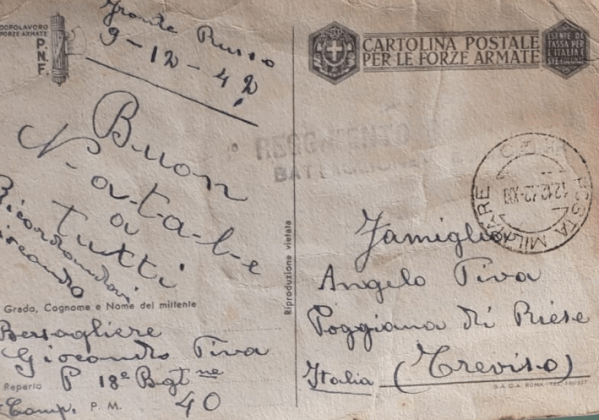 DOPOLAVORO
FORZE ARMATE
P.N.F.
Fronte Russo
9-12-42
Buon
N-a-ta-l-e
a
tutti
Ricordandovi
Giocondo
Grado, Cognome e Nome del mittente
Bersagliere
Giocondo Piva
Reparto P 18º Bgt ne
Comp. P. M. 40
Riproduzione vietata
CARTOLINA POSTALE
PER LE FORZE ARMATE
ESENTE DI
TASSA PER
L'ITALIA E
REGGIMENTO
BATTAGLIONE
POSTA MILITARE
12.12.42-XXI
Famiglia
Angelo Piva
Poggiana di Riese
Italia (Treviso)